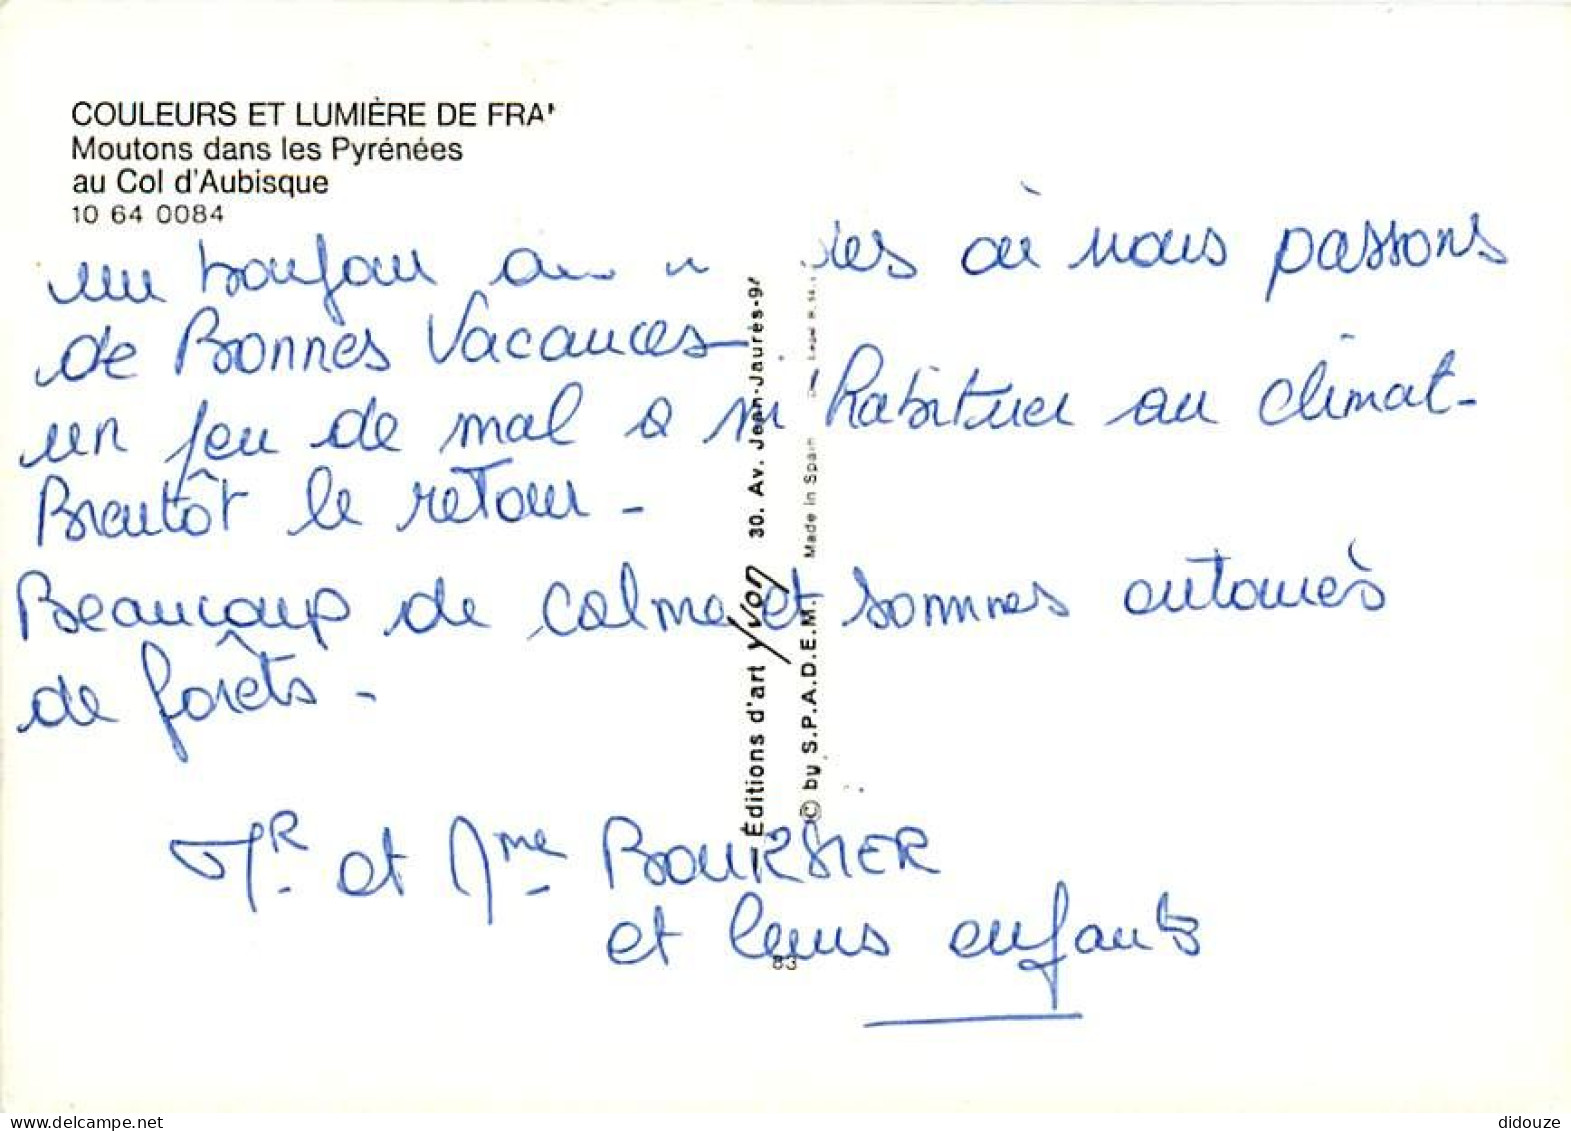 COULEURS ET LUMIÈRE DE FRA
Moutons dans les Pyrénées
au Col d'Aubisque
10 64 0084
un bonjour où nous passons
de Bonnes Vacances
un peu de mal a s'habituer au climat -
Bientôt le retour -
Beaucoup de calme et sommes entourés
de forêts -
MR. et Mme BOURSIER
et leurs enfants
Éditions d'art yvon 30. Av. Jean-Jaurès-94
© by S.P.A.D.E.M. Made in Spain
83
didouze